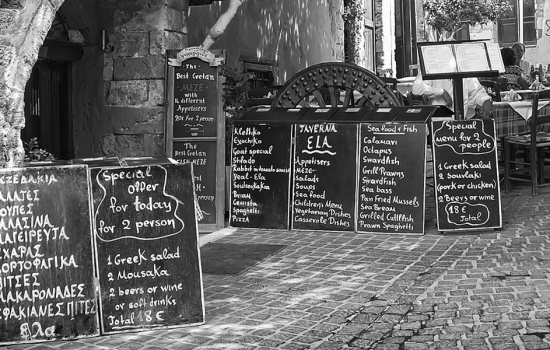 ΜΕΖΕΔΑΚΙΑ
ΣΑΛΑΤΕΣ
ΣΟΥΠΕΣ
ΘΑΛΑΣΙΝΑ
ΜΑΓΕΙΡΕΥΤΑ
ΣΧΑΡΑΣ
ΧΟΡΤΟΦΑΓΙΚΑ
ΠΙΤΣΕΣ
ΜΑΚΑΡΟΝΑΔΕΣ
ΣΦΑΚΙΑΝΕΣ ΠΙΤΕΣ
Ελα
Special
offer
for today
for 2 person
1 Greek salad
2 Mousaka
2 beers or wine
or soft drinks
Total 18 €
The
Best Cretan
MEZE
with
16 different
Appetisers
20€ for 2 person
The
Best Cretan
MEZE
Kleftiko
Exochiko
Goat special
Stifado
Rabbit in tomato sauce
Veal - Ela
Souvlakia
Briam
Gemista
Spaghetti
Pizza
TAVERNA
ELA
Appetisers
MEZE
Salads
Soups
Sea food
Children's Menu
Vegetarian Dishes
Casserole Dishes
Sea Food & Fish
Calamari
Octapus
Swardfish
Grill Prawns
Swardfish
Sea bass
Pan Fried Sardines
Sea Bream
Grilled Cuttlfish
Prawn Spaghetti
Special MENU
for 2 people
1 Greek salad
2 Souvlaki
(pork or chicken)
2 Beers or wine
18 €
Total